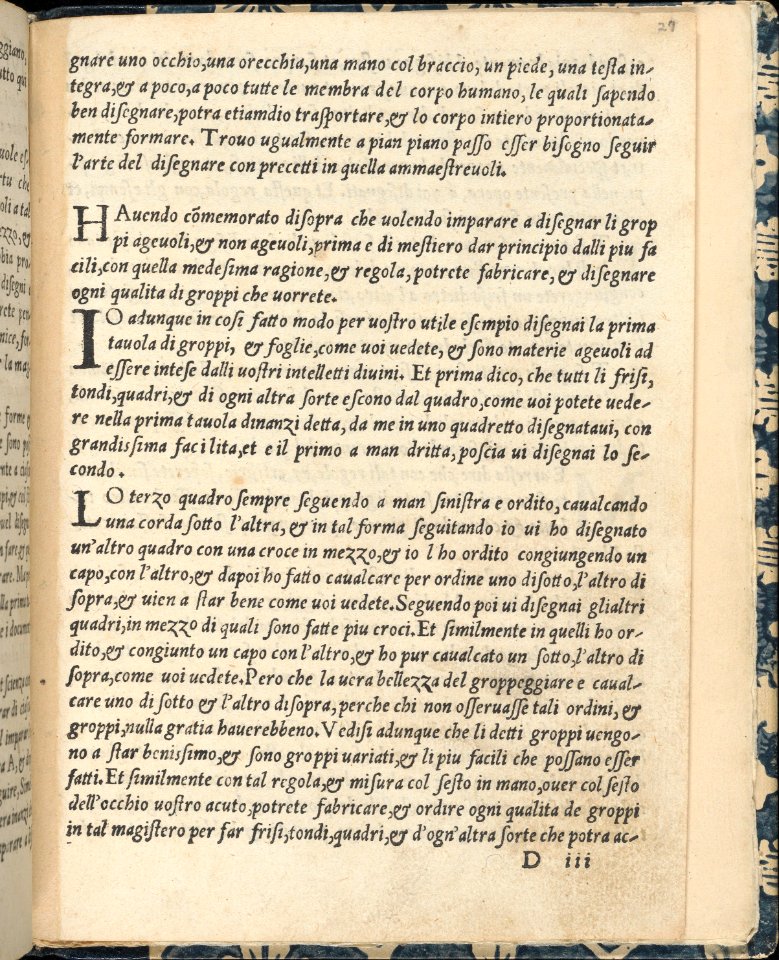 29
gnare uno occhio,una orecchia,una mano col braccio, un piede, una testa in-
tegra,& a poco,a poco tutte le membra del corpo humano, le quali sapendo
ben disegnare,potra etiamdio trasportare,& lo corpo intiero proportionata-
mente formare. Trouo ugualmente a pian piano passo esser bisogno seguir
l'arte del disegnare con precetti in quella ammaestreuoli.
HAuendo cōmemorato disopra che uolendo imparare a disegnar li grop
pi ageuoli,& non ageuoli,prima e di mestiero dar principio dalli piu fa
cili,con quella medesima ragione,& regola, potrete fabricare, & disegnare
ogni qualita di groppi che uorrete.
IO adunque in cosi fatto modo per uostro utile esempio disegnai la prima
tauola di groppi, & foglie,come uoi uedete, & sono materie ageuoli ad
essere intese dalli uostri intelletti diuini. Et prima dico, che tutti li frisi,
tondi,quadri,& di ogni altra sorte escono dal quadro,come uoi potete uede-
re nella prima tauola dinanzi detta, da me in uno quadretto disegnataui, con
grandissima facilita,et e il primo a man dritta, poscia ui disegnai lo se-
condo.
LO terzo quadro sempre seguendo a man sinistra e ordito, caualcando
una corda sotto l'altra, & in tal forma seguitando io ui ho disegnato
un'altro quadro con una croce in mezzo,& io l ho ordito congiungendo un
capo,con l'altro,& dapoi ho fatto caualcare per ordine uno disotto,l'altro di
sopra,& uien a star bene come uoi uedete.Seguendo poi ui disegnai glialtri
quadri,in mezzo di quali sono fatte piu croci.Et similmente in quelli ho or-
dito,& congiunto un capo con l'altro,& ho pur caualcato un sotto,l'altro di
sopra,come uoi uedete.Pero che la uera bellezza del groppeggiare e caual-
care uno di sotto & l'altro disopra, perche chi non osseruasse tali ordini, &
groppi,nulla gratia hauerebbeno.Vedisi adunque che li detti groppi uengo-
no a star benissimo,& sono groppi uariati,& li piu facili che possano esser
fatti.Et similmente con tal regola,& misura col sesto in mano,ouer col sesto
dell'occhio uostro acuto,potrete fabricare,& ordire ogni qualita de groppi
in tal magistero per far frisi,tondi,quadri,& d'ogn'altra sorte che potra ac-
D iii